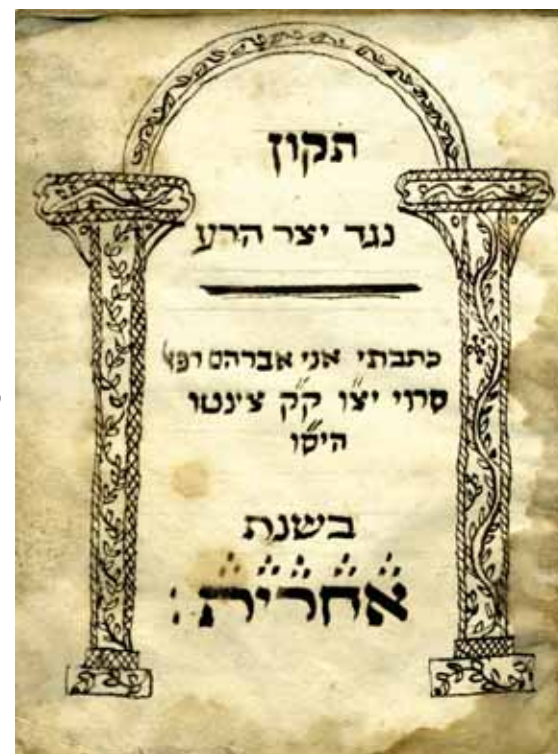 תקון
נגד יצר הרע
כתבתי אני אברהם
סרוי יצ״ו ק״ק צינטו
היסו
בשנת
אחרית: